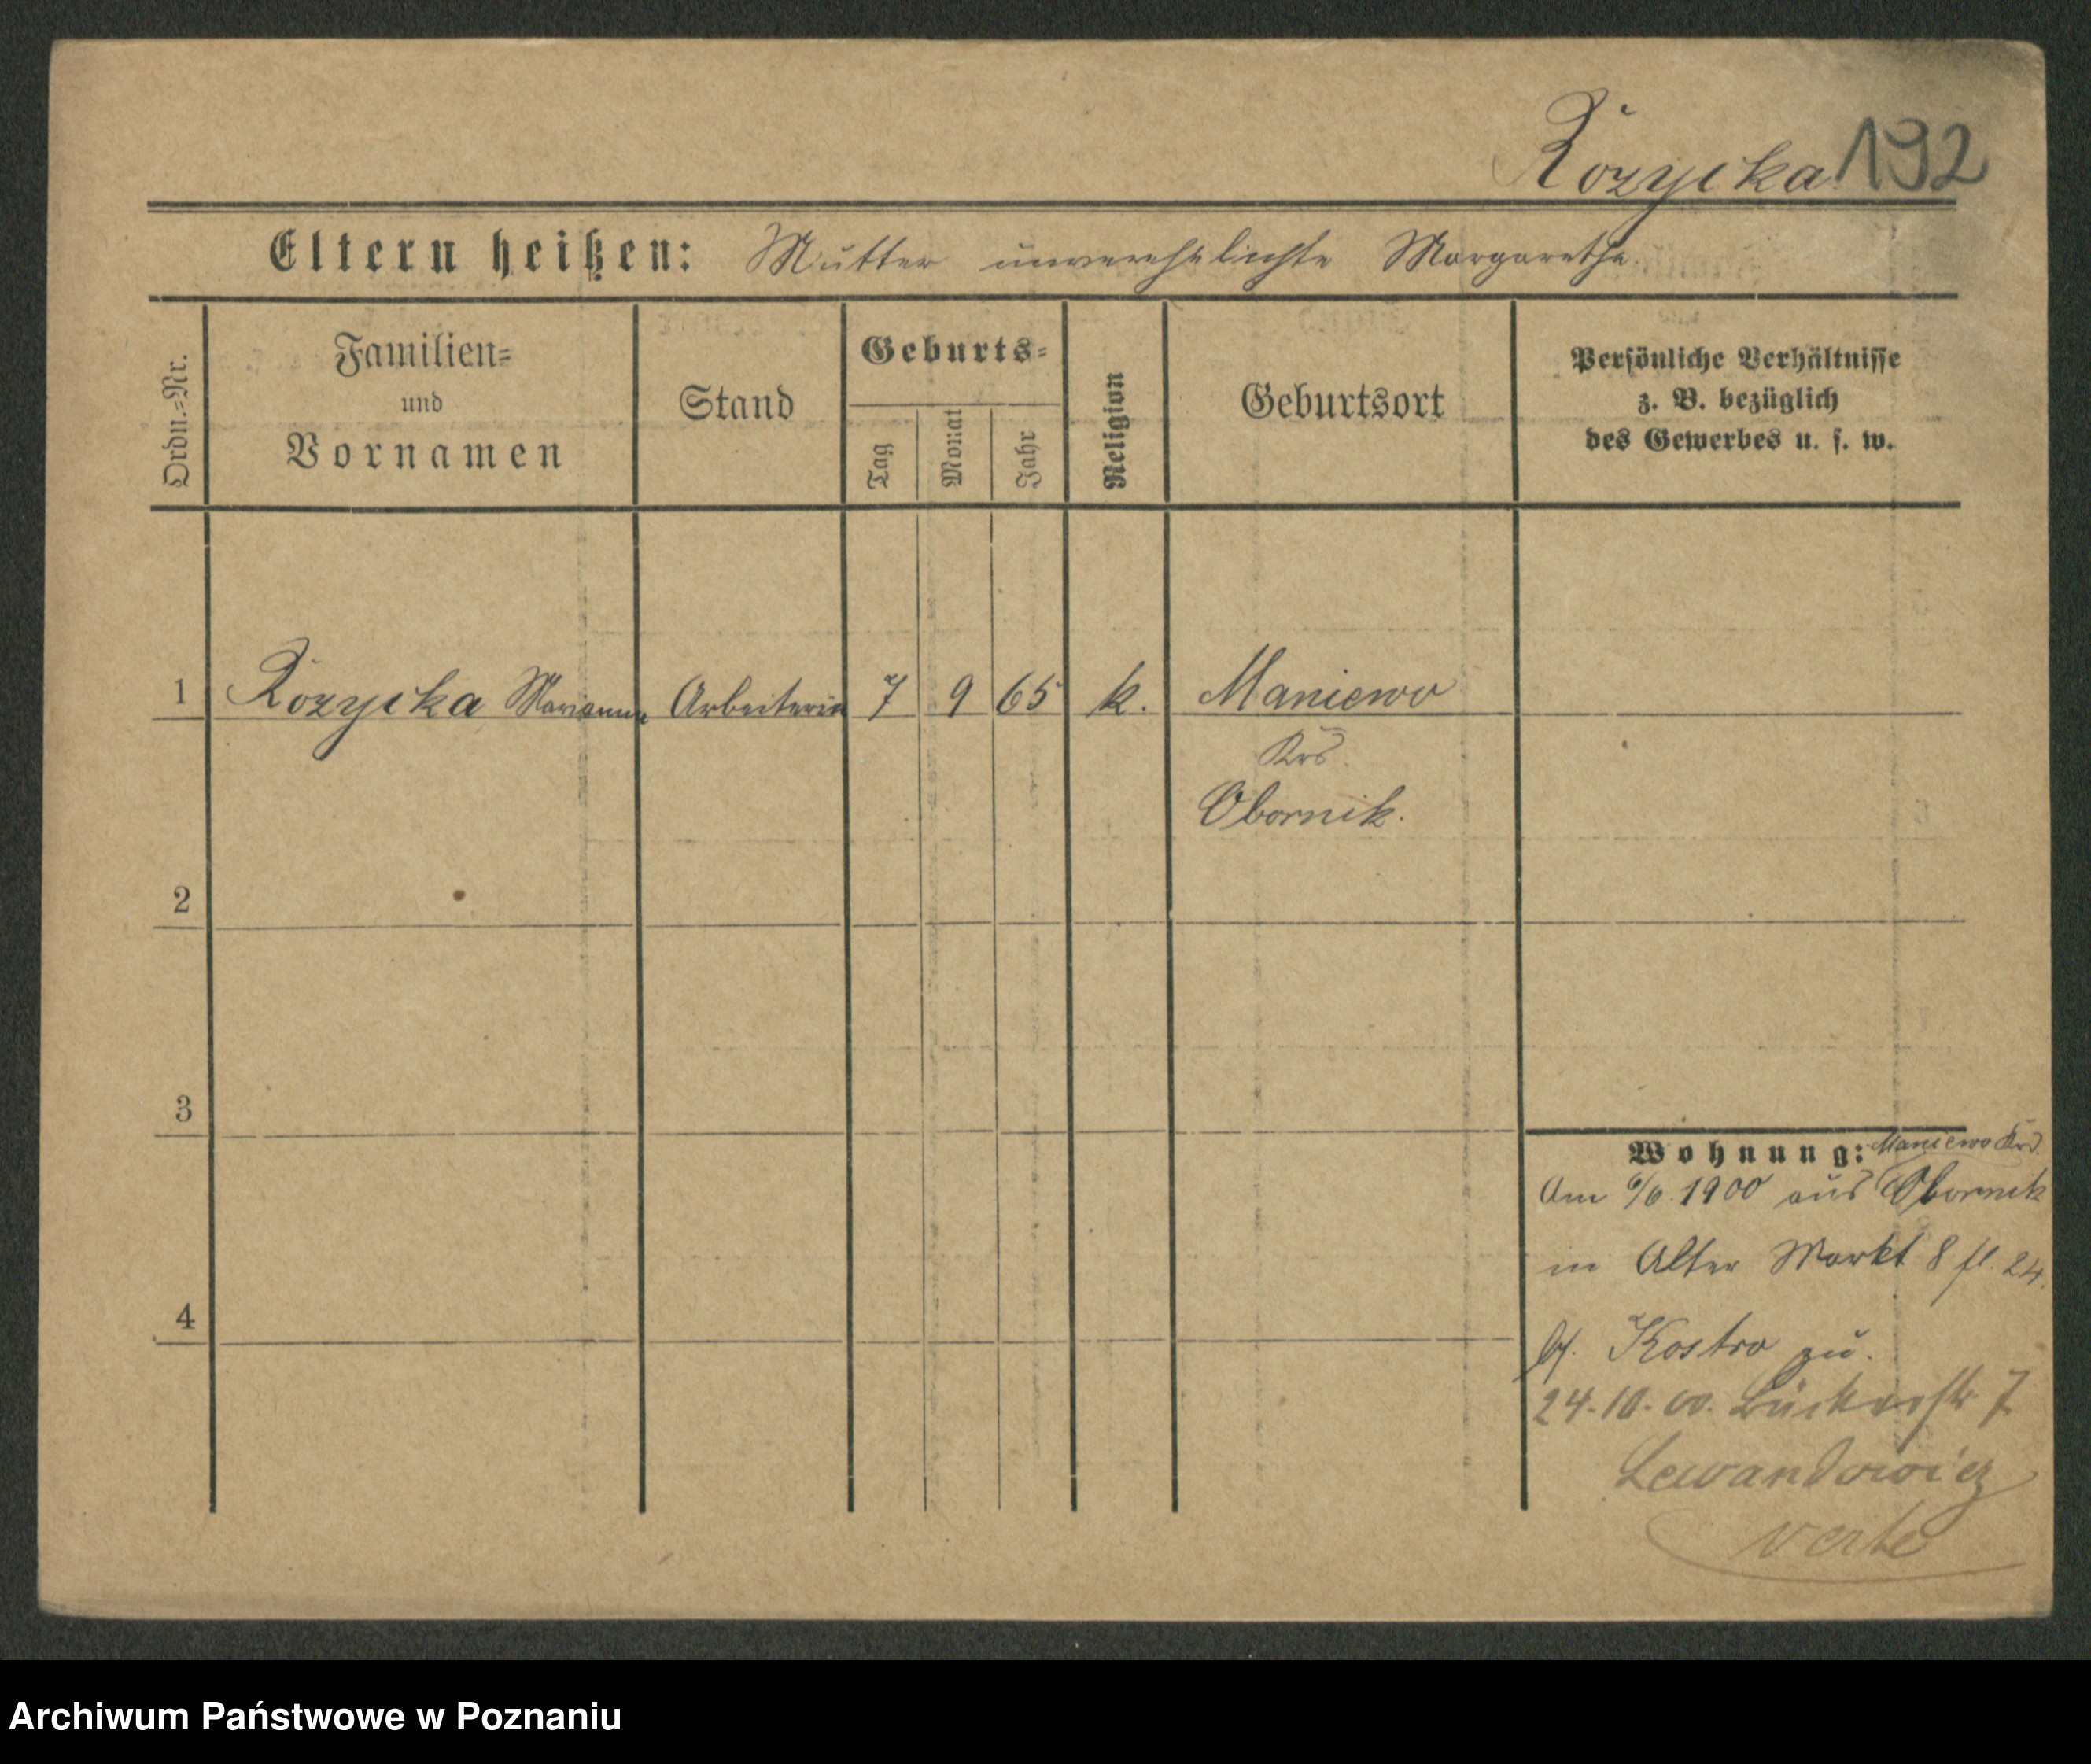 Rozycka 192
Eltern heißen: Mutter unverehelichte Margarethe.
Ordn.=Nr.
Familien=
und
Vornamen
Stand
Geburts=
Tag
Monat
Jahr
Religion
Geburtsort
Persönliche Verhältnisse
z. B. bezüglich
des Gewerbes u. s. w.
1 Rozycka Marianna Arbeiterin 7 9 65 k. Maniewo
Krs.
Obornik.
2
3
4
Wohnung: Maniewo Krs.
Am 6/6. 1900 aus Obornik
in Alter Markt 8 fl. 24.
bf. Kostro zu.
24.10.00. 7
Lewandowicz
verte
Archiwum Państwowe w Poznaniu